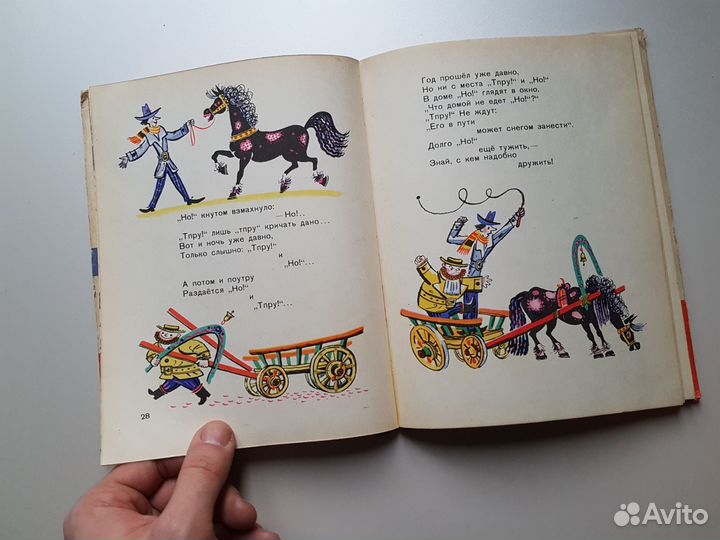 „Но!“ кнутом взмахнуло:
— Но!..
„Тпру!“ лишь „тпру“ кричать дано...
Вот и ночь уже давно,
Только слышно: „Тпру!“
и
„Но!“...
А потом и поутру
Раздаётся „Но!“
и
„Тпру!“...
28
Год прошёл уже давно,
Но ни с места „Тпру!“ и „Но!“
В доме „Но!“ глядят в окно,
„Что домой не едет „Но!“?“
„Тпру!“ Не ждут:
„Его в пути
может снегом занести“.
Долго „Но!“
ещё тужить,—
Знай, с кем надобно
дружить!
Avito